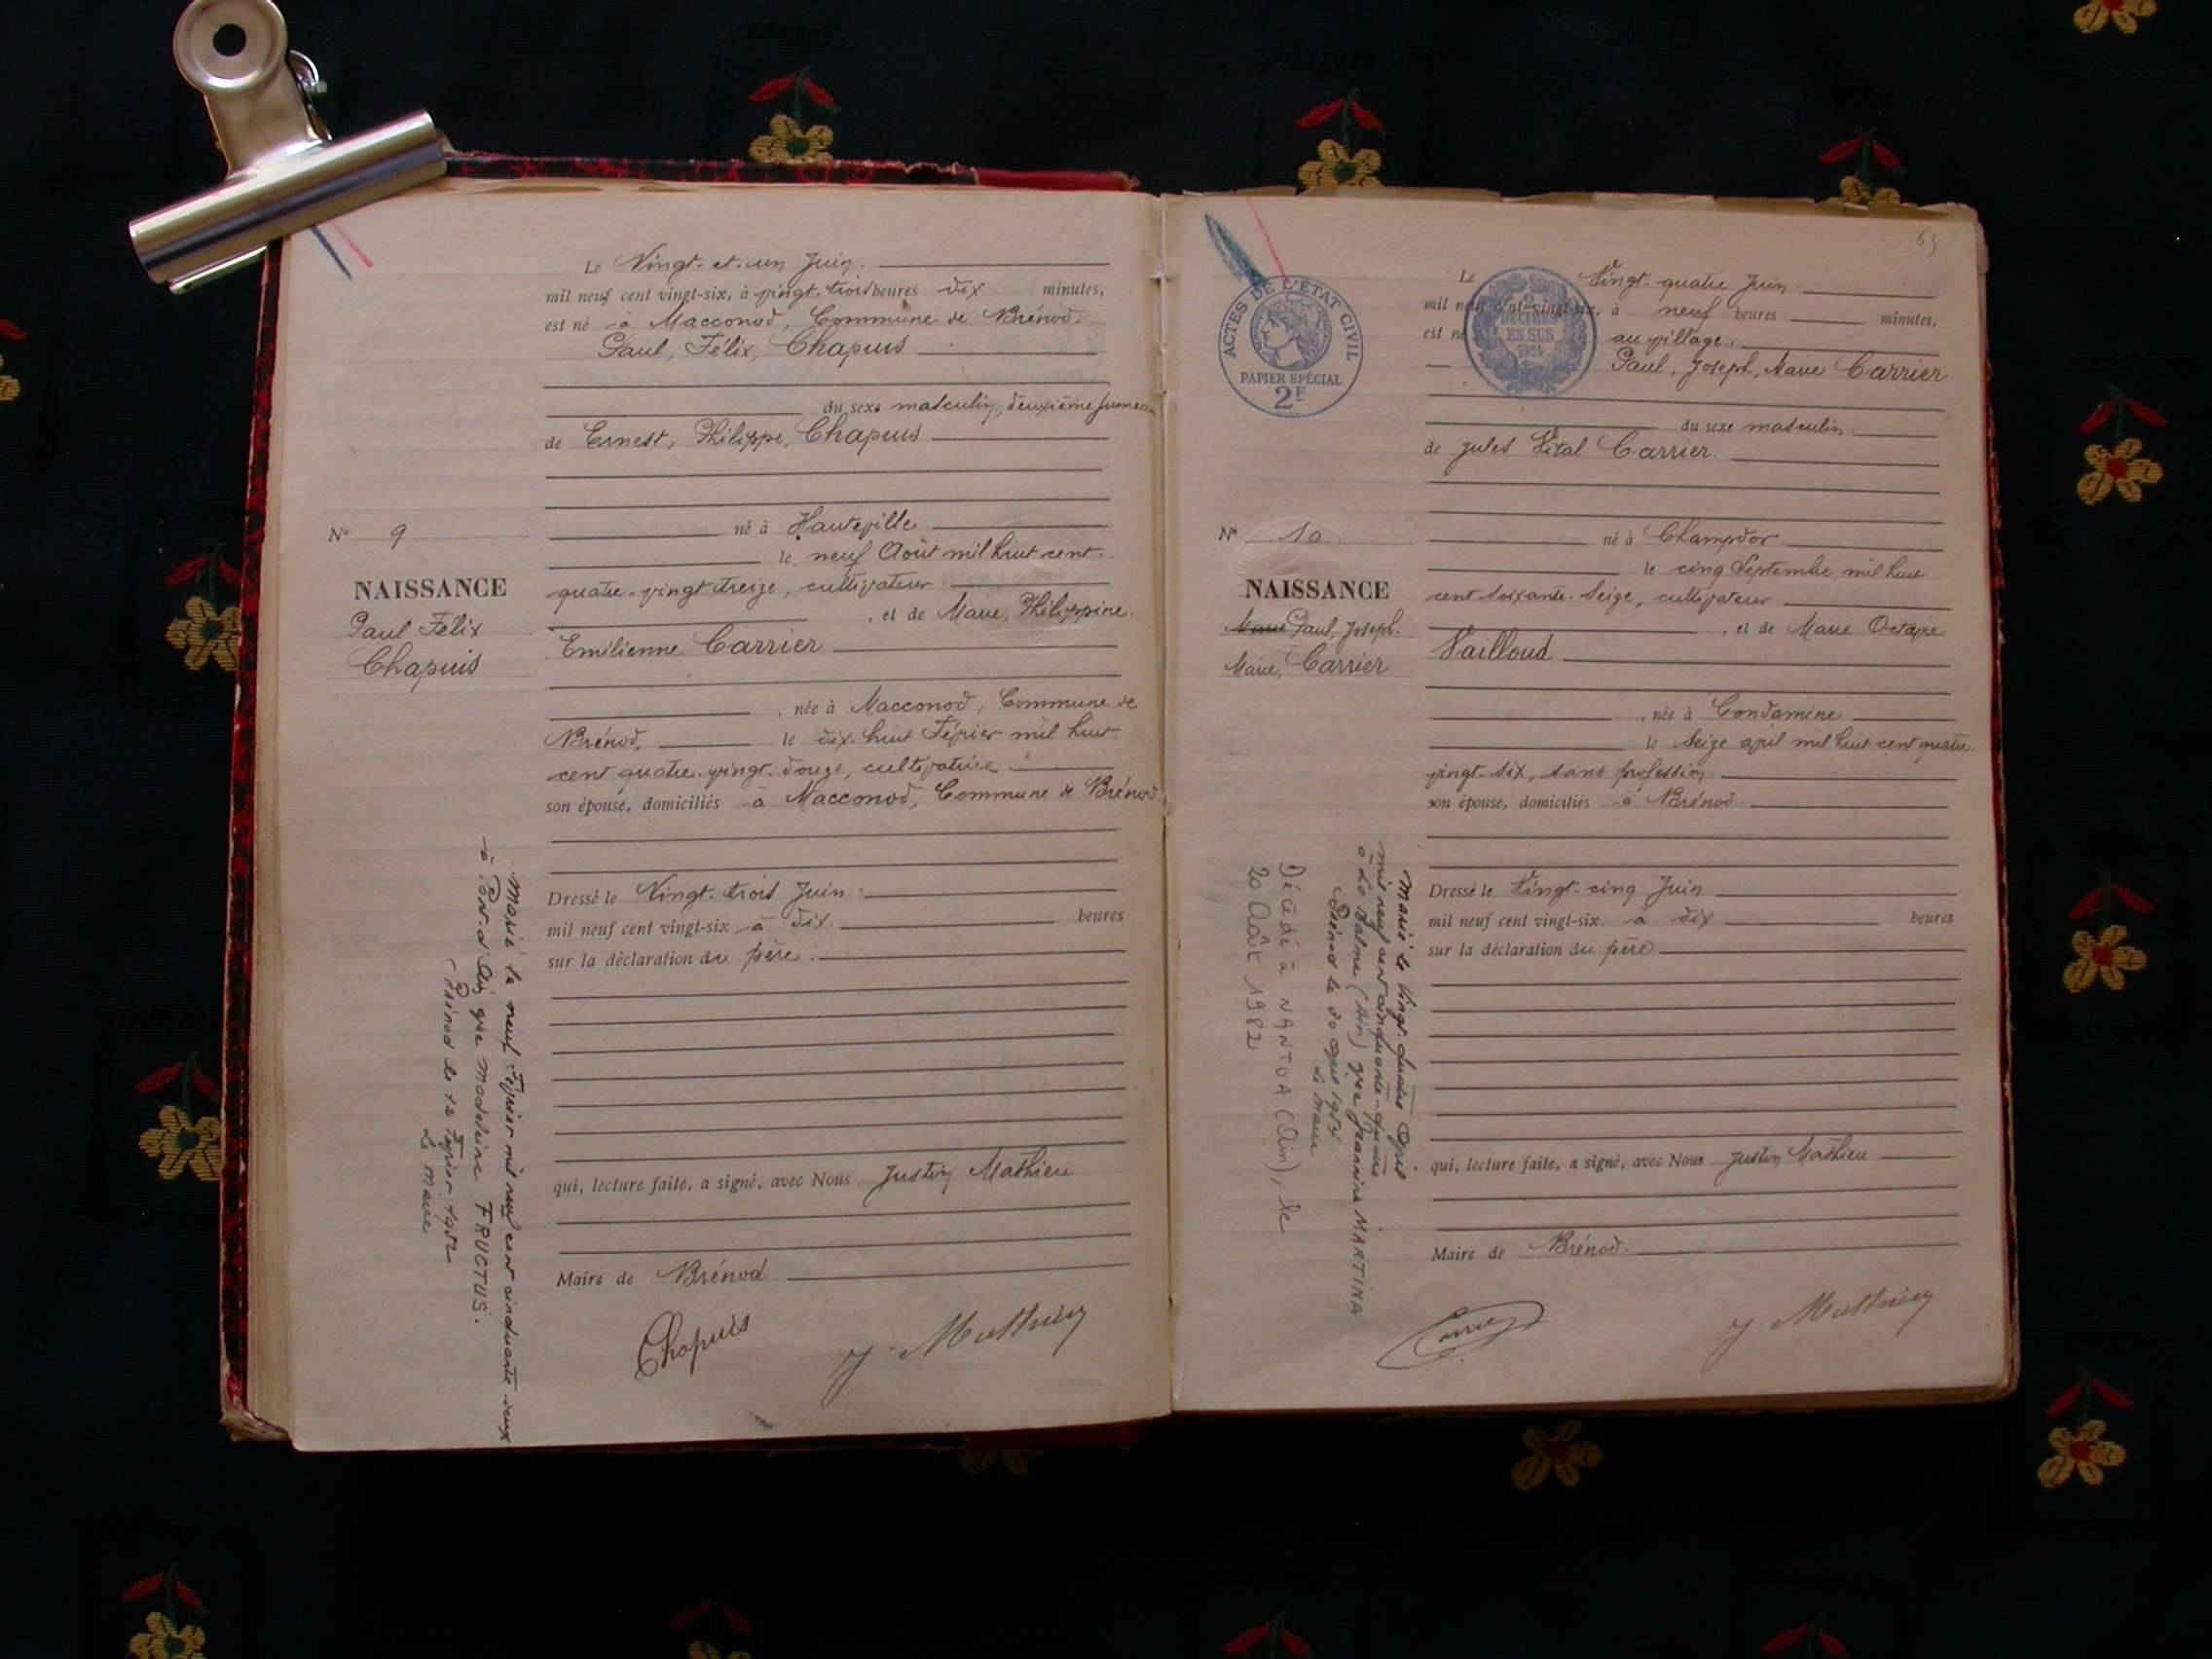 Le Vingt-et-un Juin.
mil neuf cent vingt-six, à vingt-trois heures dix minutes,
est né à Macconod, Commune de Brénod.
Paul, Félix, Chapuis
du sexe masculin, deuxième jumeau
de Ernest, Philippe, Chapuis
né à Hauteville
le neuf Août mil huit cent
quatre-vingt treize, cultivateur
, et de Marie, Philippine
Emilienne Carrier
, née à Macconod, Commune de
Brénod, le dix-huit Février mil huit
cent quatre-vingt-douze, cultivatrice
son épouse, domiciliés à Macconod, Commune de Brénod
Dressé le Vingt-trois Juin
mil neuf cent vingt-six à dix heures
sur la déclaration du père.
qui, lecture faite, a signé, avec Nous Justin Mathieu
Maire de Brénod
Chapuis J. Mathieu
N° 9
NAISSANCE
Paul Félix
Chapuis
Marié le neuf Février mil neuf cent cinquante-deux
à Pont-d'Ain avec Madeleine FRUCTUS.
Brénod le 12 Février 1952
Le Maire
63
Le Vingt-quatre Juin
mil neuf cent vingt-six, à neuf heures minutes,
est né au village.
Paul, Joseph, Marie Carrier
du sexe masculin
de Jules Vital Carrier.
né à Champdor
le cinq Septembre mil huit
cent soixante-seize, cultivateur
, et de Marie Octavie
Vailloud
, née à Condamine
le seize avril mil huit cent quatre-
vingt-six, sans profession
son épouse, domiciliés à Brénod
Dressé le Vingt-cinq Juin
mil neuf cent vingt-six à dix heures
sur la déclaration du père
qui, lecture faite, a signé, avec Nous Justin Mathieu
Maire de Brénod.
Carrier J. Mathieu
ACTES DE L'ÉTAT CIVIL
PAPIER SPÉCIAL
2F
2
DÉCIMES
EN SUS
1924
N° 10
NAISSANCE
Marie Paul, Joseph
Marie, Carrier
Marié le Vingt-quatre Avril
mil neuf cent cinquante-quatre
à La Balme (Ain) avec Jeannine MARTINA
Brénod le 30 avril 1954
Le Maire
Décédé à NANTUA (Ain), le
20 Août 1982